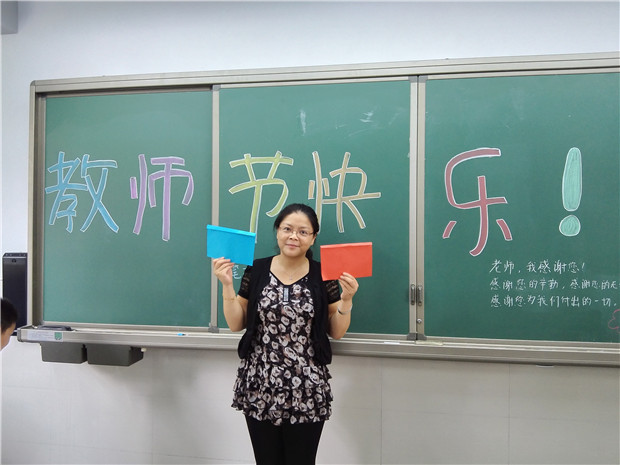 教师节快乐!
老师,我感谢您!
感谢您的辛勤,感谢您的
感谢您为我们付出的一切,